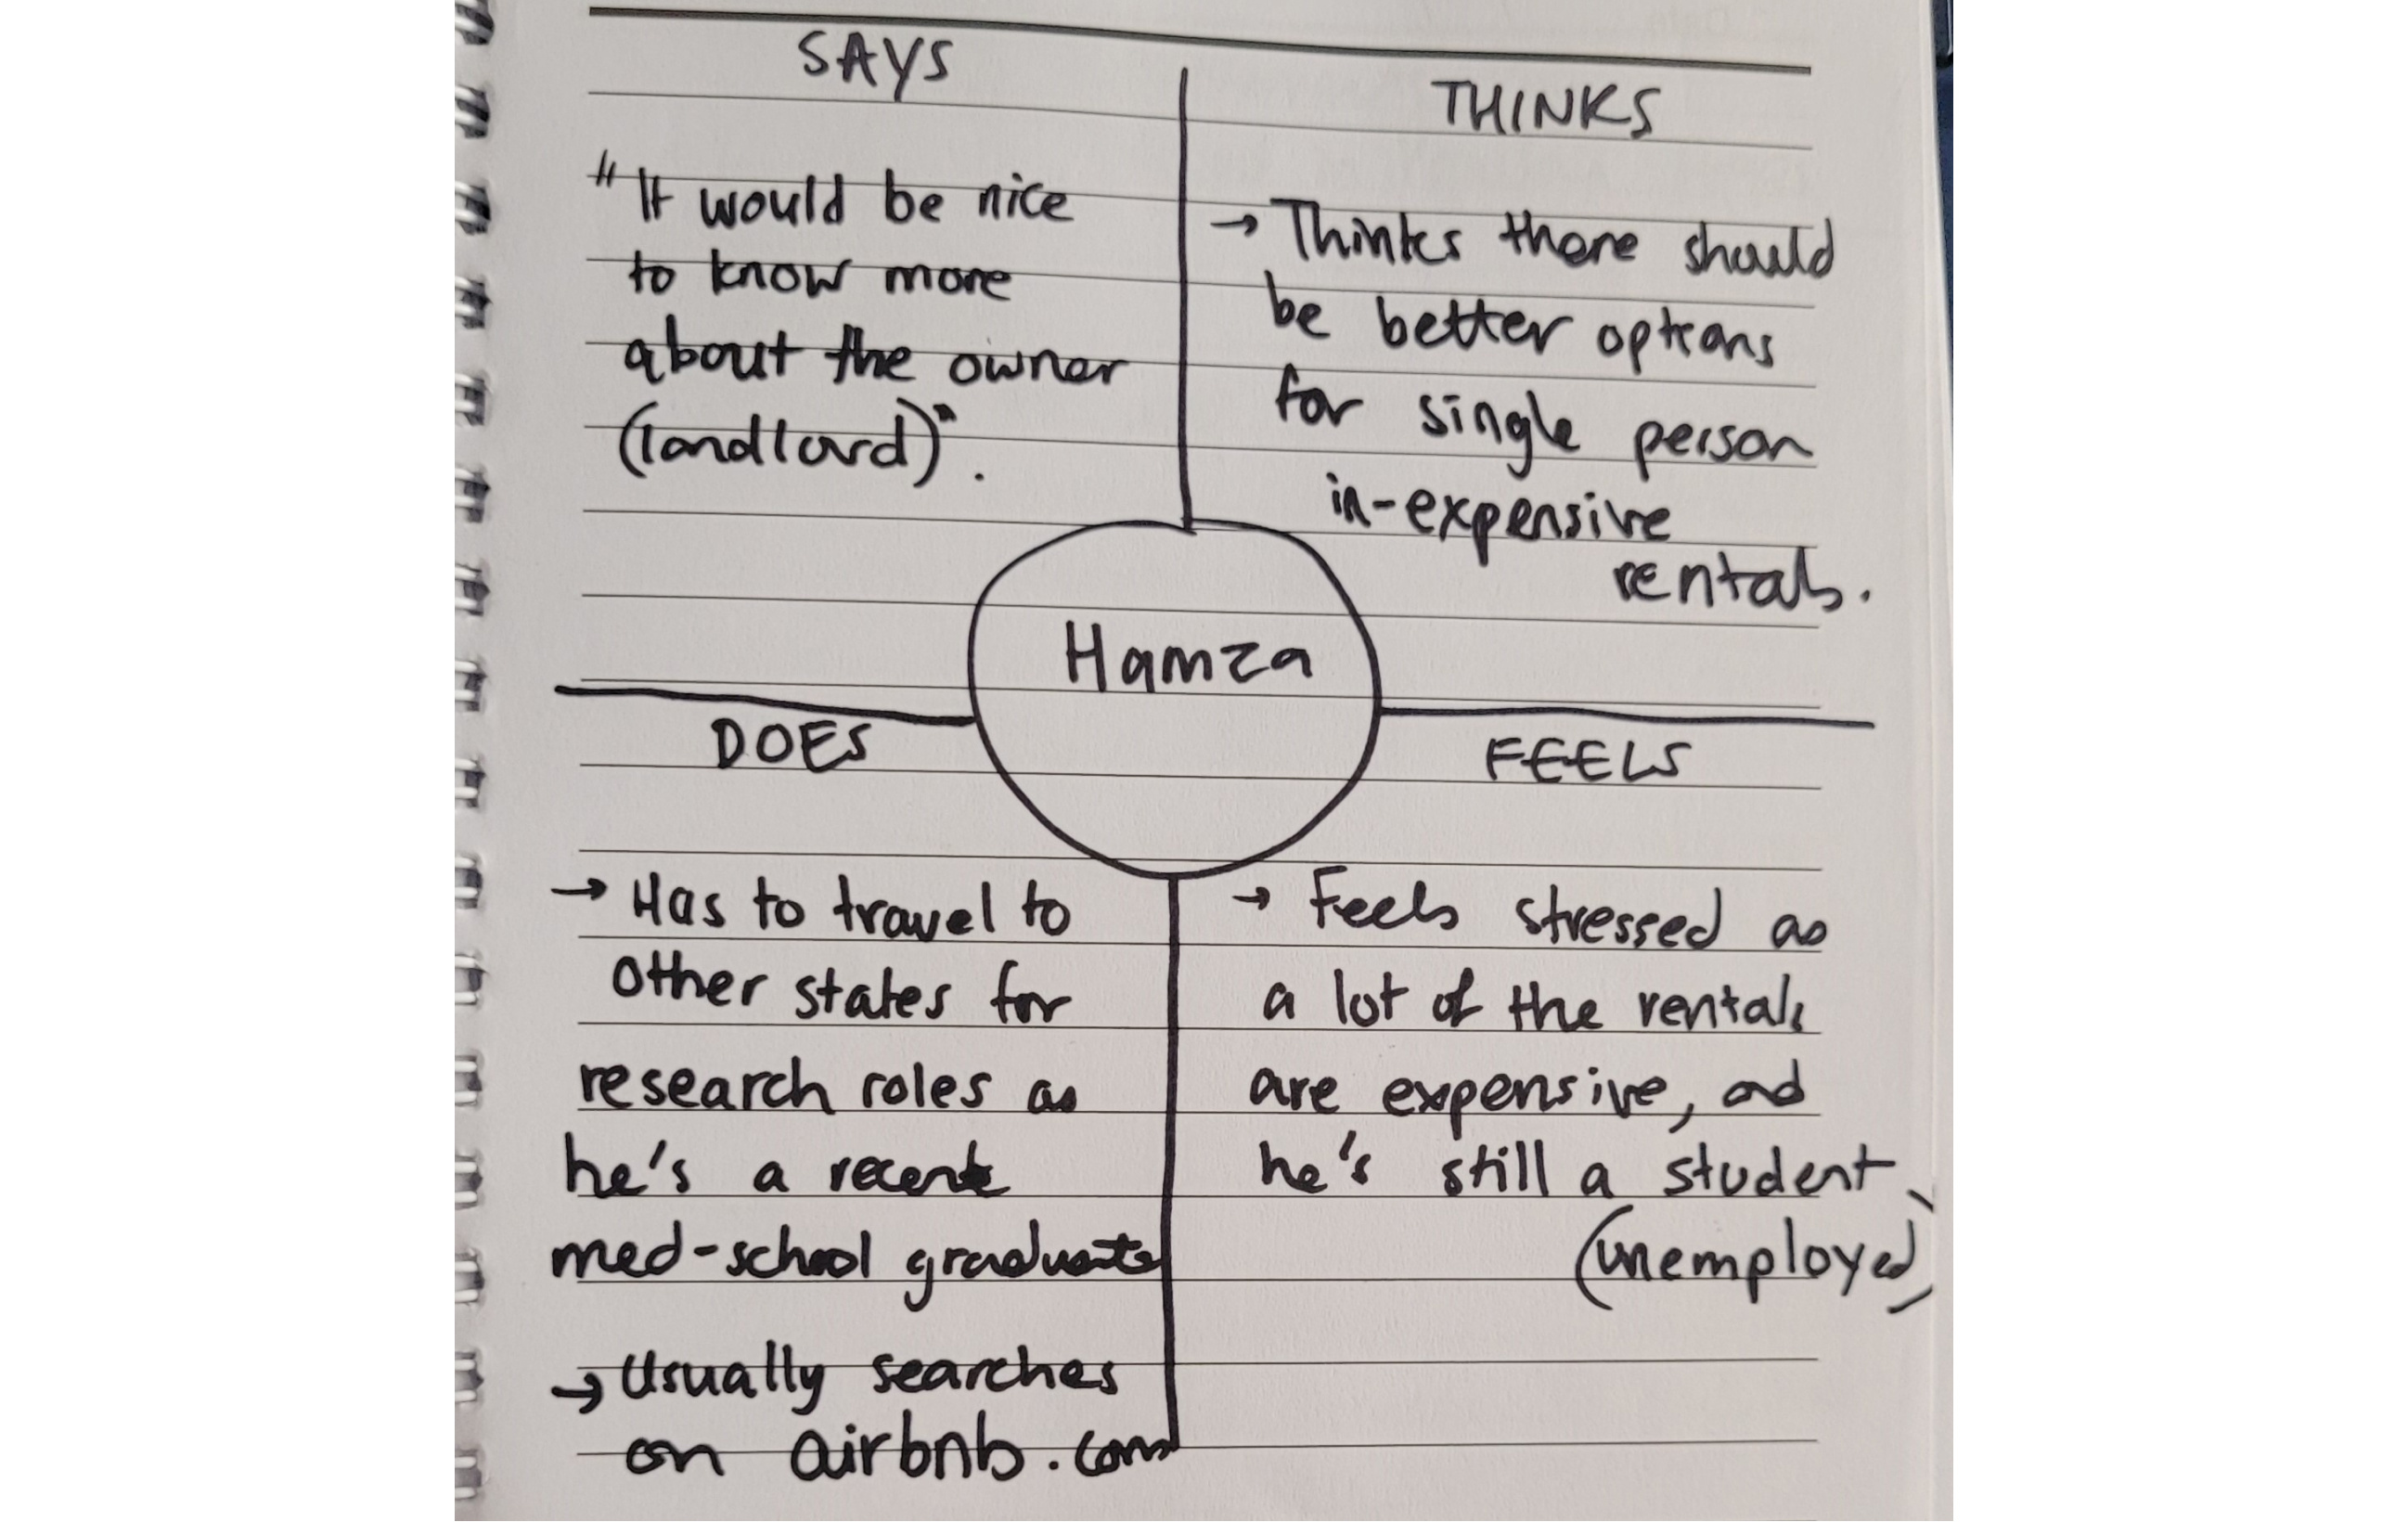 SAYS
"It would be nice
to know more
about the owner
(landlord)".
THINKS
→ Thinks there should
be better options
for single person
in-expensive
rentals.
Hamza
DOES
→ Has to travel to
other states for
research roles as
he's a recent
med-school graduate
→ Usually searches
on airbnb.com
FEELS
→ Feels stressed as
a lot of the rentals
are expensive, and
he's still a student
(unemployed)